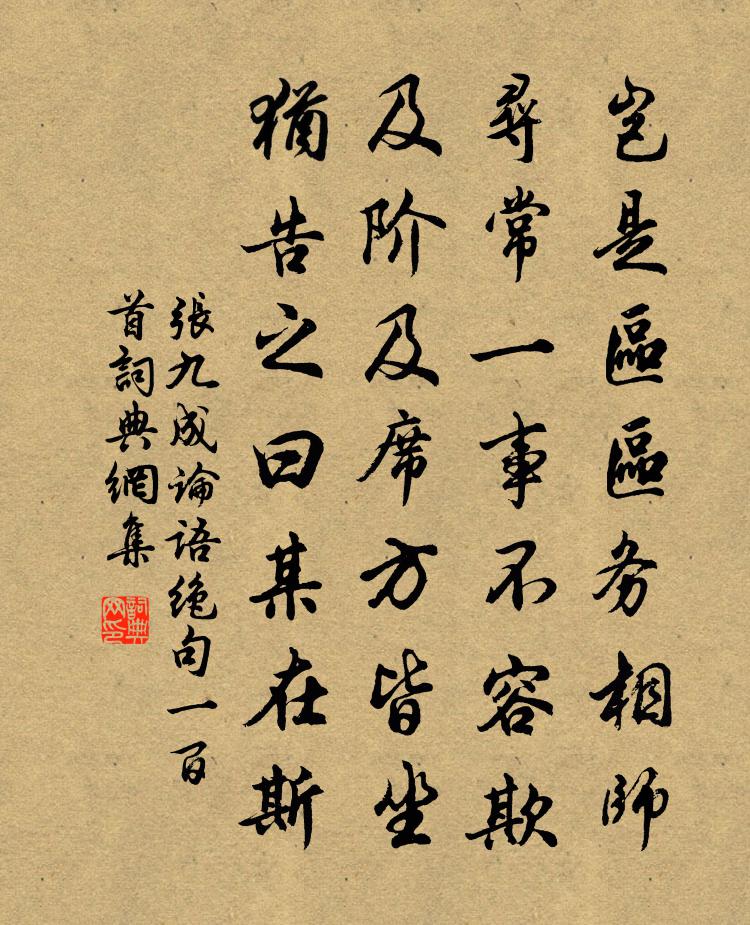 岂是區區务相师
尋常一事不容欺
及阶及席方皆坐
猶告之曰某在斯
張九成论语绝句一百
首詞典網集
詞典
网印